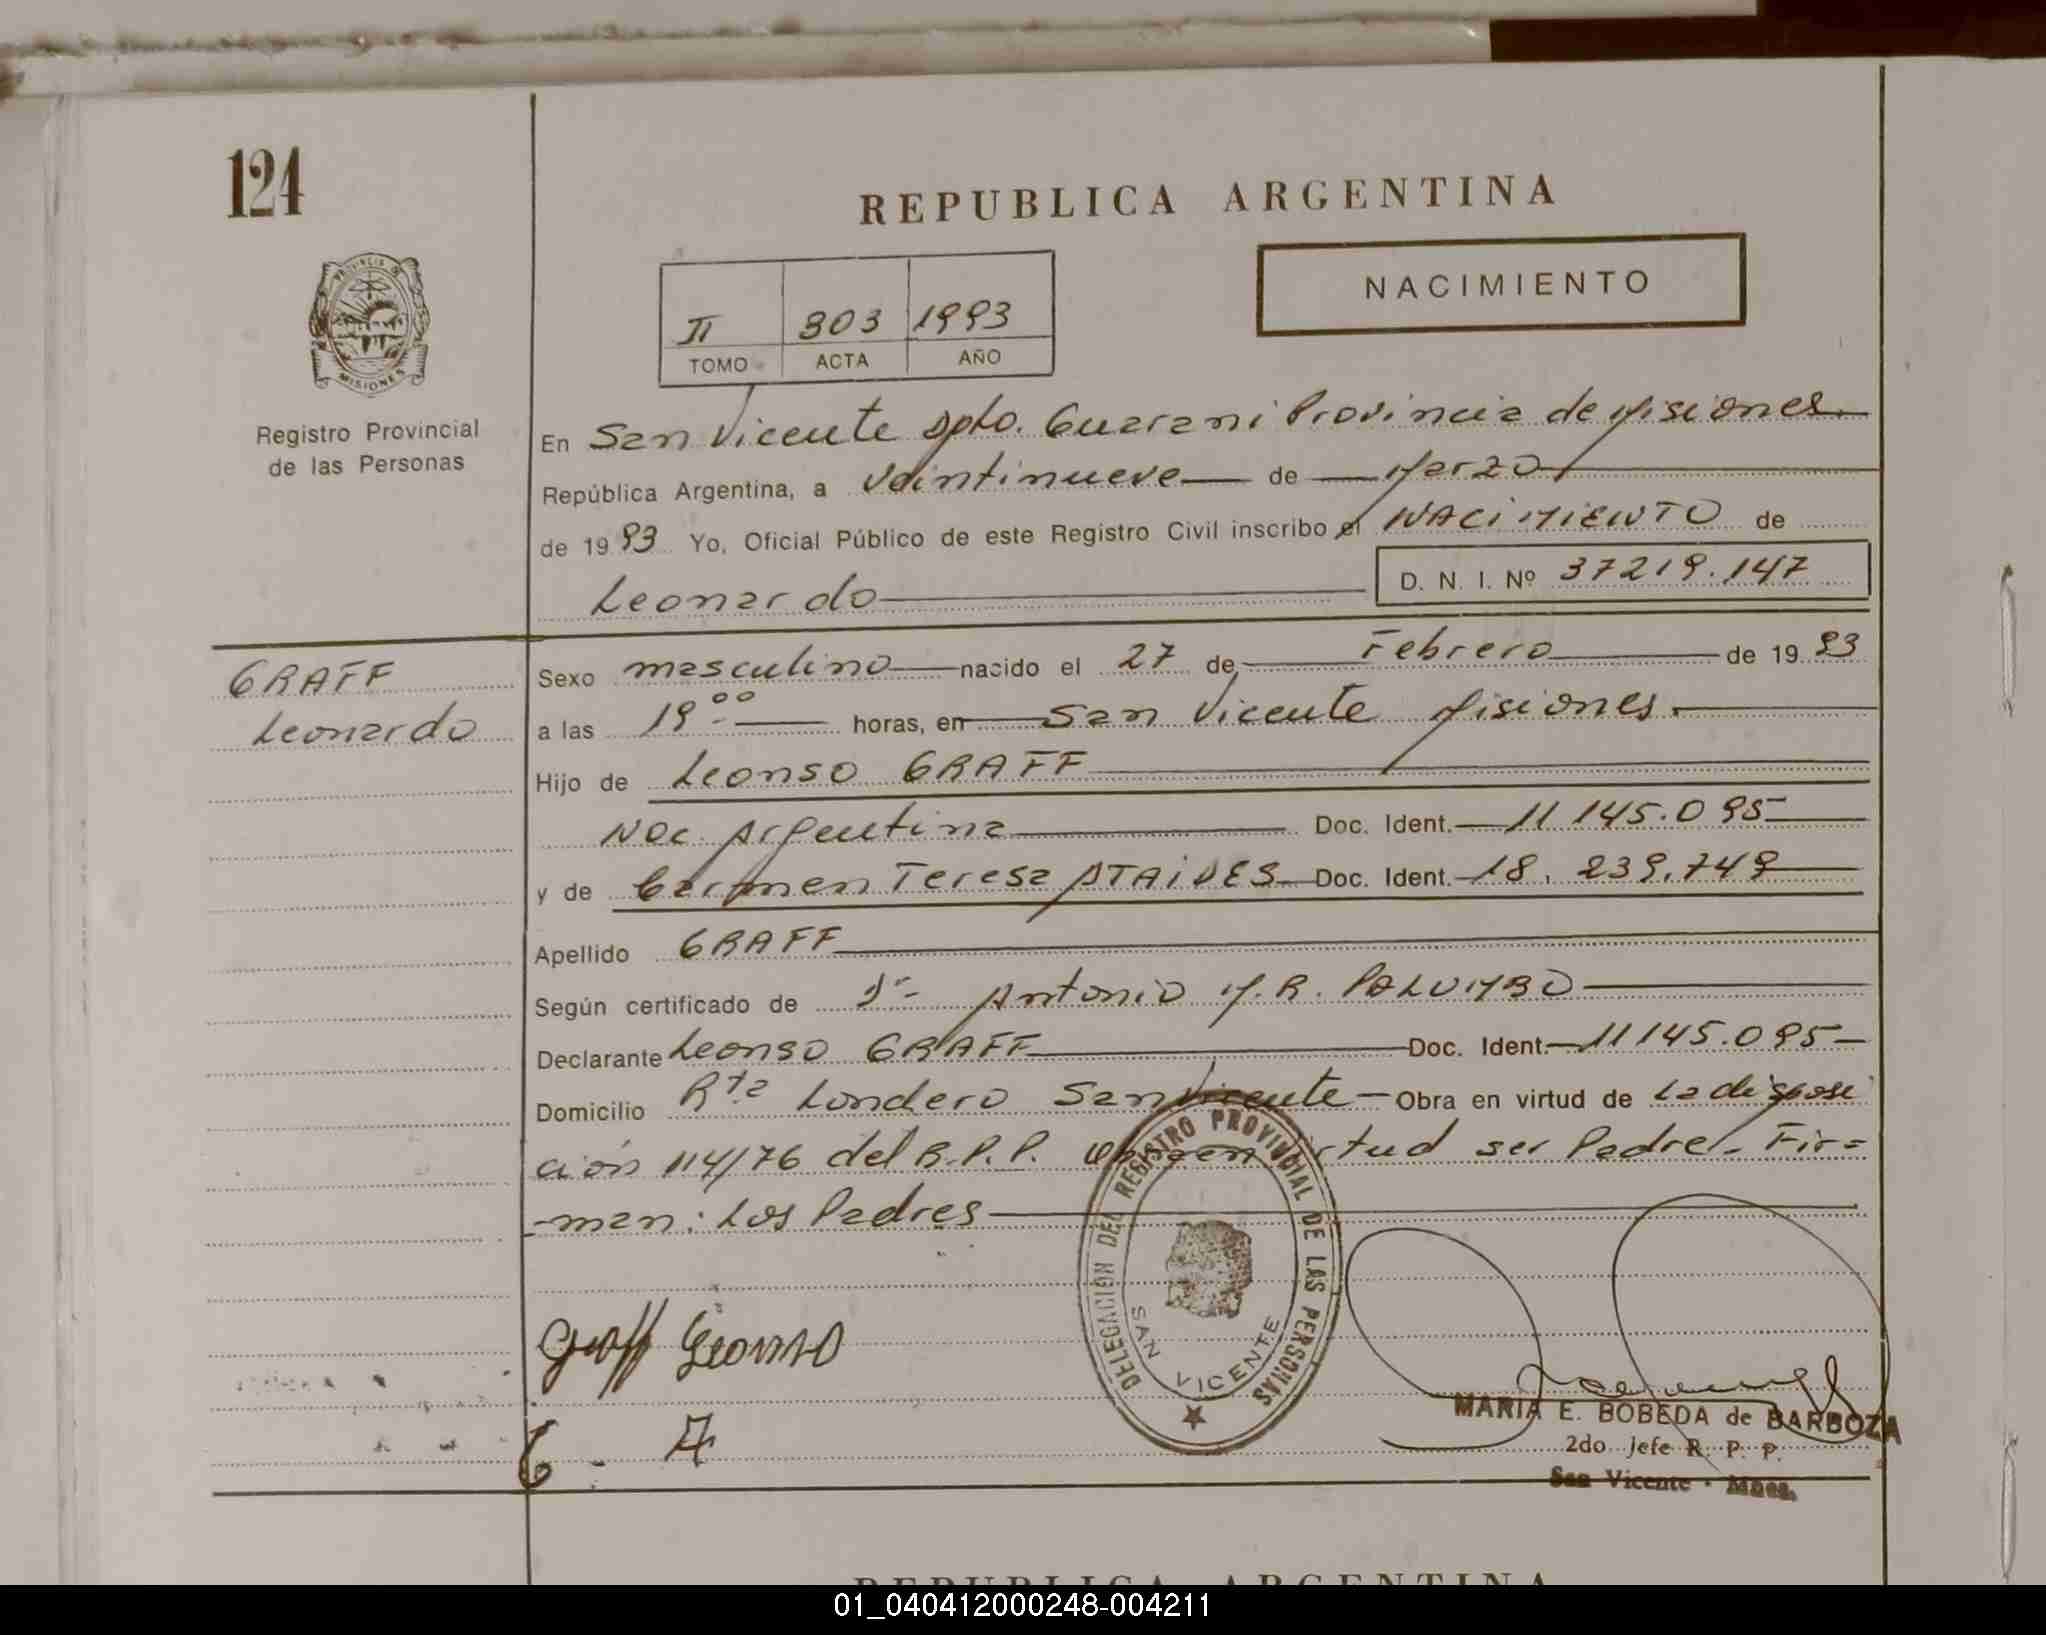 124
REPUBLICA ARGENTINA
NACIMIENTO
II 303 1993
TOMO ACTA AÑO
PROVINCIA DE
MISIONES
Registro Provincial
de las Personas
En San Vicente Dpto. Guarani Provincia de Misiones.
República Argentina, a Veintinueve de Marzo
de 1993 Yo, Oficial Público de este Registro Civil inscribo el NACIMIENTO de
Leonardo D. N. I. Nº 37219.147
GRAFF
Leonardo
Sexo masculino nacido el 27 de Febrero de 1993
a las 19.00 horas, en San Vicente Misiones.
Hijo de Leonso GRAFF
Nac. Argentina Doc. Ident. 11 145.095
y de Carmen Teresa ATAIDES Doc. Ident. 18.239.749
Apellido GRAFF
Según certificado de Dr. Antonio M.R. PALUMBO
Declarante Leonso GRAFF Doc. Ident. 11145.095
Domicilio Rta Londero San Vicente Obra en virtud de La disposi
ción 114/76 del R.P.P. virtud ser Padre. Fir=
-man: Los Padres
DELEGACION DEL REGISTRO PROVINCIAL DE LAS PERSONAS
SAN VICENTE
Graff Leonso
MARIA E. BOBEDA de BARBOZA
2do. Jefe R. P. P.
San Vicente - Mnes.
REPUBLICA ARGENTINA
01_040412000248-004211